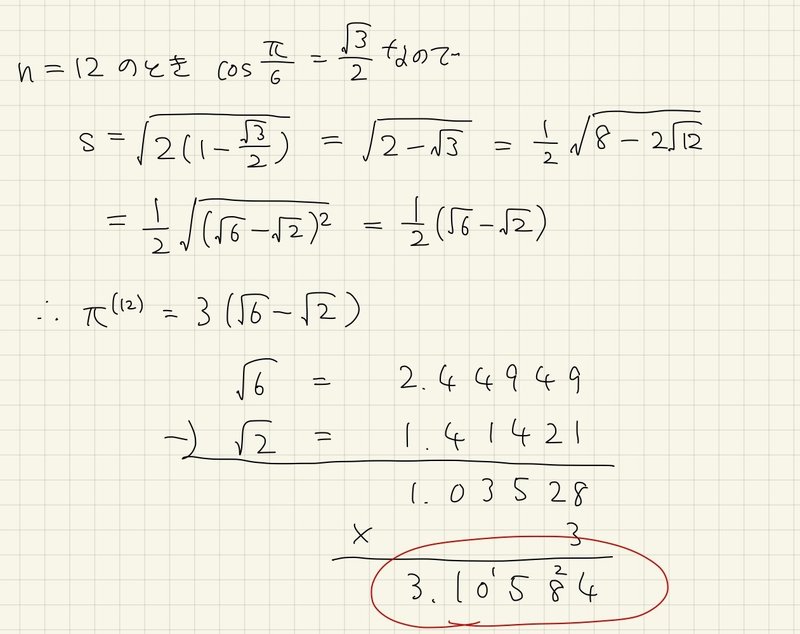 n = 12 のとき cos π/6 = √3/2 なので
s = √(2(1 - √3/2)) = √(2 - √3) = 1/2 √(8 - 2√12)
= 1/2 √((√6 - √2)²) = 1/2 (√6 - √2)
∴ π⁽¹²⁾ = 3 (√6 - √2)
√6 = 2.44949
-) √2 = 1.41421
1.03528
× 3
3.10¹58²4